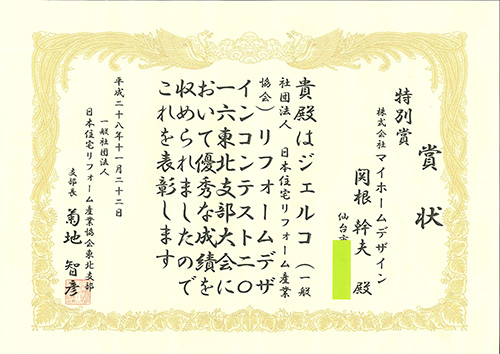 賞状
特別賞
株式会社マイホームデザイン
関根 幹夫 殿
仙台市
貴殿はジェルコ（一般
社団法人 日本住宅リフォーム産業
協会）リフォームデザ
インコンテスト二〇
一六東北支部大会に
おいて優秀な成績を
収められましたので
これを表彰します
平成二十八年十一月二十二日
一般社団法人
日本住宅リフォーム産業協会東北支部
支部長 菊地 智彦